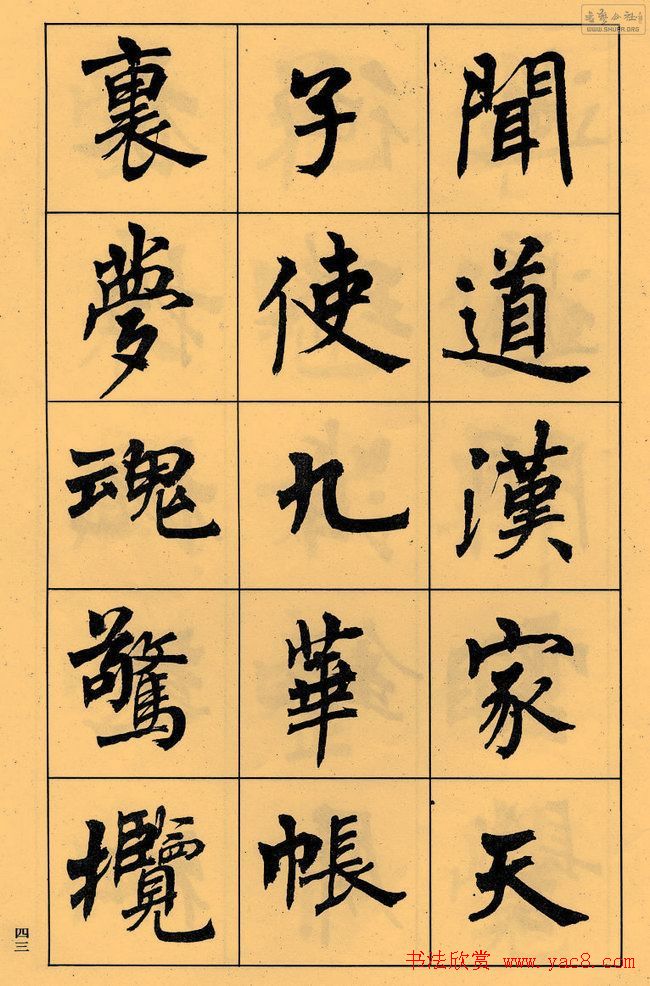 聞道漢家天
子使九華帳
裏夢魂驚攬
四三
书法公社
WWW.SHUFA.ORG
书法欣赏 www.yac8.com